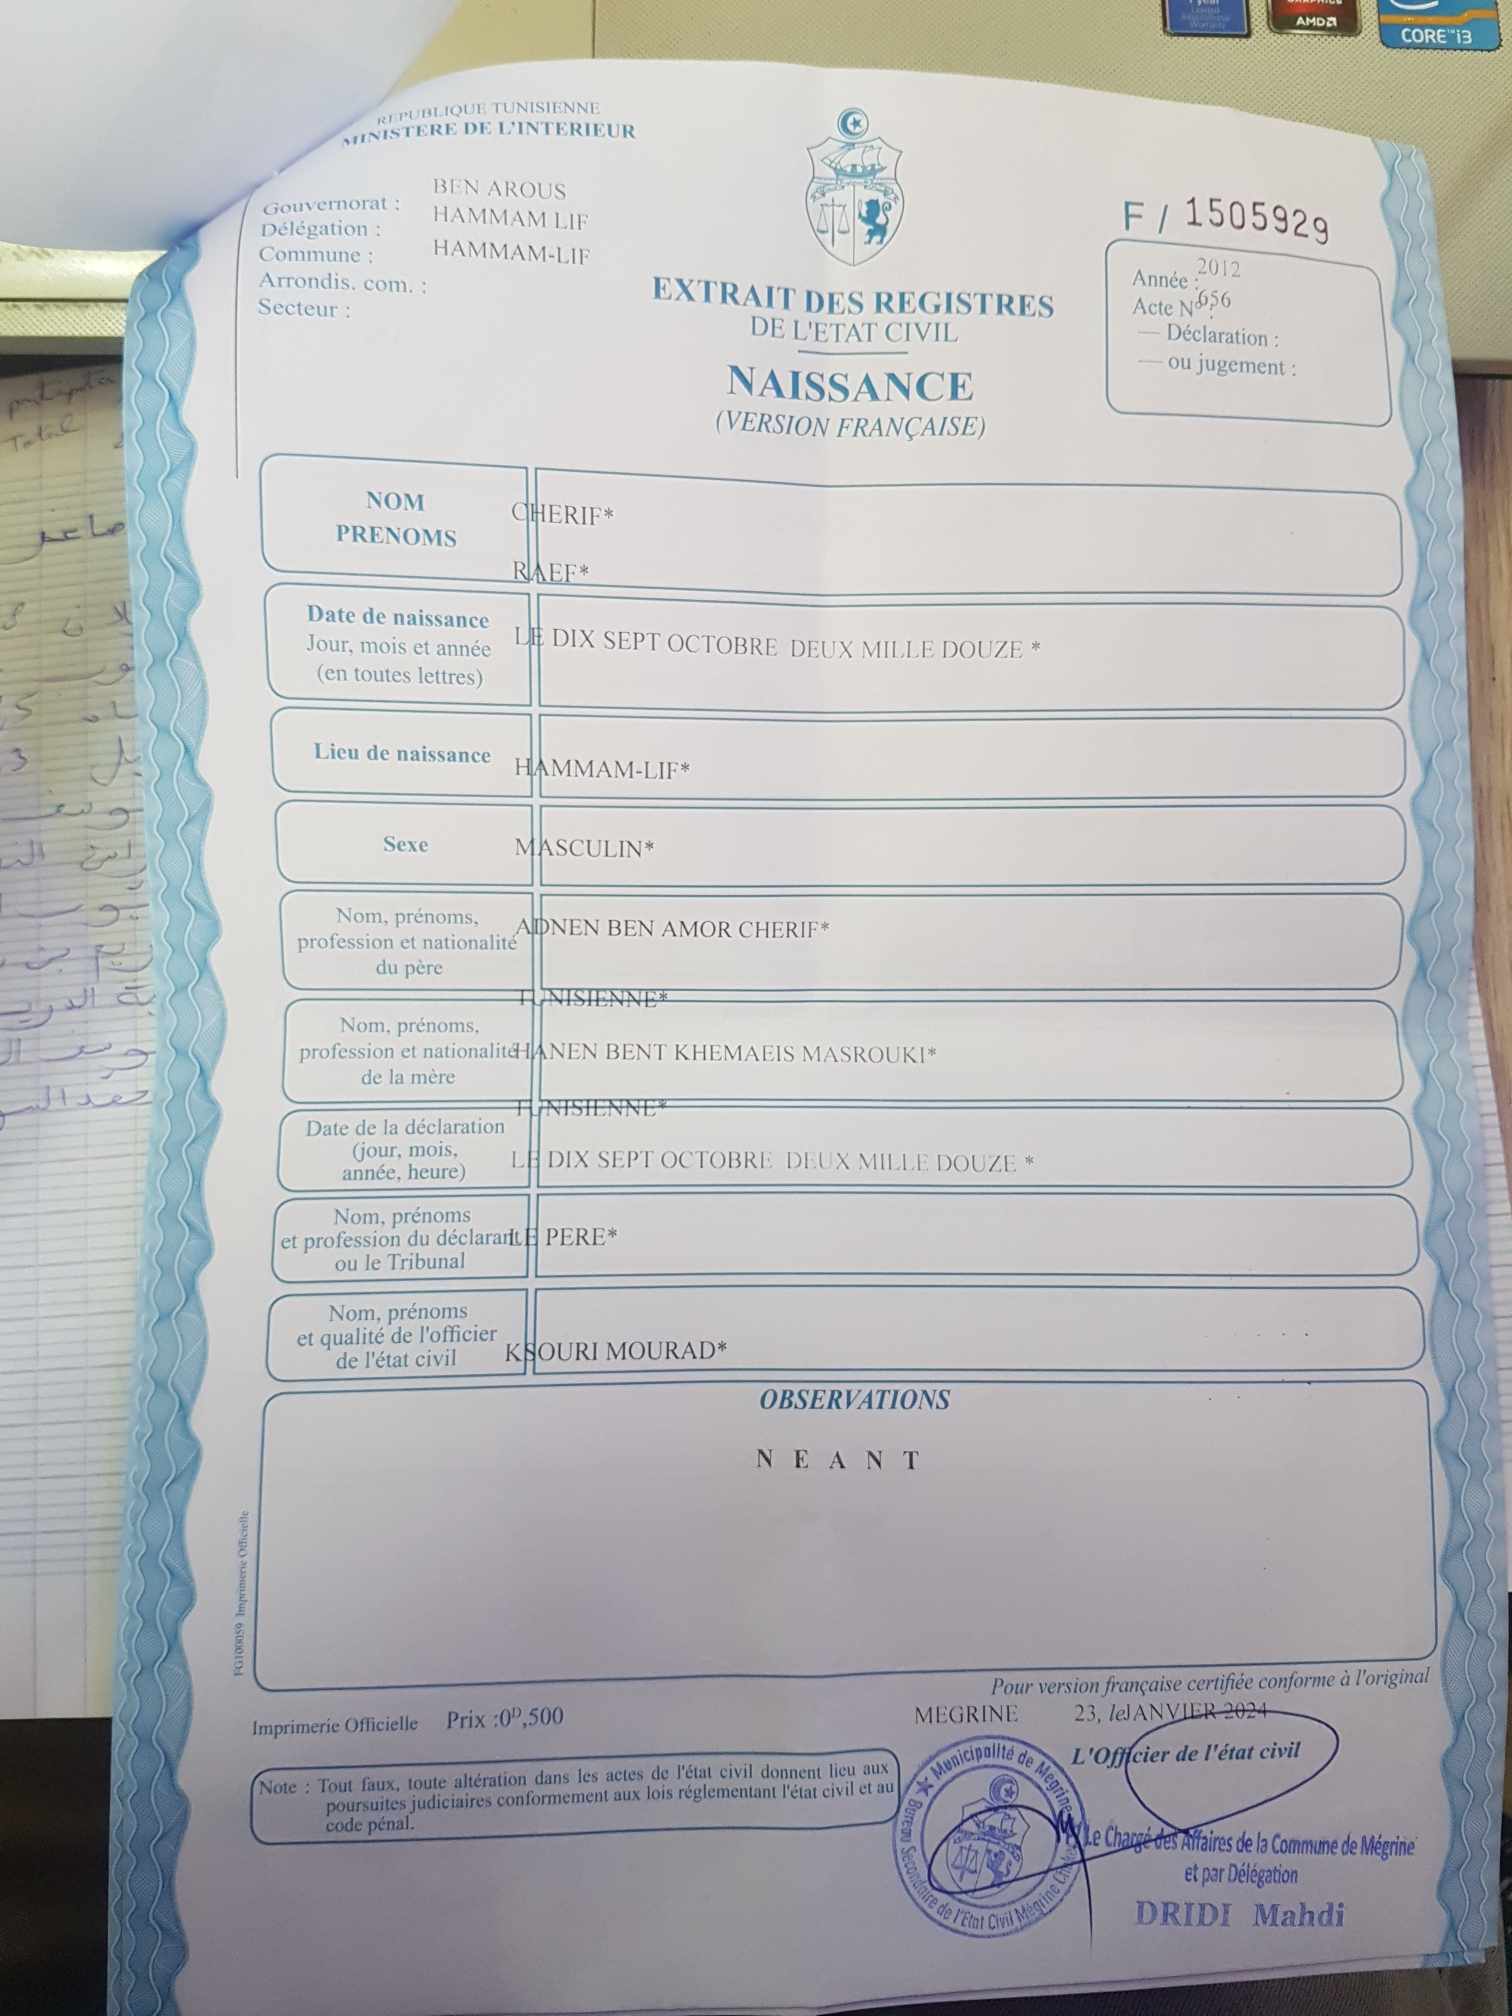 AMD
CORE i3
REPUBLIQUE TUNISIENNE
MINISTERE DE L'INTERIEUR
Gouvernorat : BEN AROUS
Délégation : HAMMAM LIF
Commune : HAMMAM-LIF
Arrondis. com. :
Secteur :
EXTRAIT DES REGISTRES
DE L'ETAT CIVIL
NAISSANCE
(VERSION FRANÇAISE)
F / 1505929
Année : 2012
Acte N° : 656
— Déclaration :
— ou jugement :
NOM
PRENOMS
CHERIF*
RAEF*
Date de naissance
Jour, mois et année
(en toutes lettres)
LE DIX SEPT OCTOBRE DEUX MILLE DOUZE *
Lieu de naissance
HAMMAM-LIF*
Sexe
MASCULIN*
Nom, prénoms,
profession et nationalité
du père
ADNEN BEN AMOR CHERIF*
TUNISIENNE*
Nom, prénoms,
profession et nationalité
de la mère
HANEN BENT KHEMAEIS MASROUKI*
TUNISIENNE*
Date de la déclaration
(jour, mois,
année, heure)
LE DIX SEPT OCTOBRE DEUX MILLE DOUZE *
Nom, prénoms
et profession du déclarant
ou le Tribunal
LE PERE*
Nom, prénoms
et qualité de l'officier
de l'état civil
KSOURI MOURAD*
OBSERVATIONS
N E A N T
FG100059 Imprimerie Officielle
Pour version française certifiée conforme à l'original
MEGRINE 23, le JANVIER 2024
Imprimerie Officielle Prix :0D,500
L'Officier de l'état civil
Note : Tout faux, toute altération dans les actes de l'état civil donnent lieu aux
poursuites judiciaires conformement aux lois réglementant l'état civil et au
code pénal.
Municipalité de Megrine
Bureau Secondaire de l'Etat Civil Mégrine
Le Chargé des Affaires de la Commune de Mégrine
et par Délégation
DRIDI Mahdi
Total